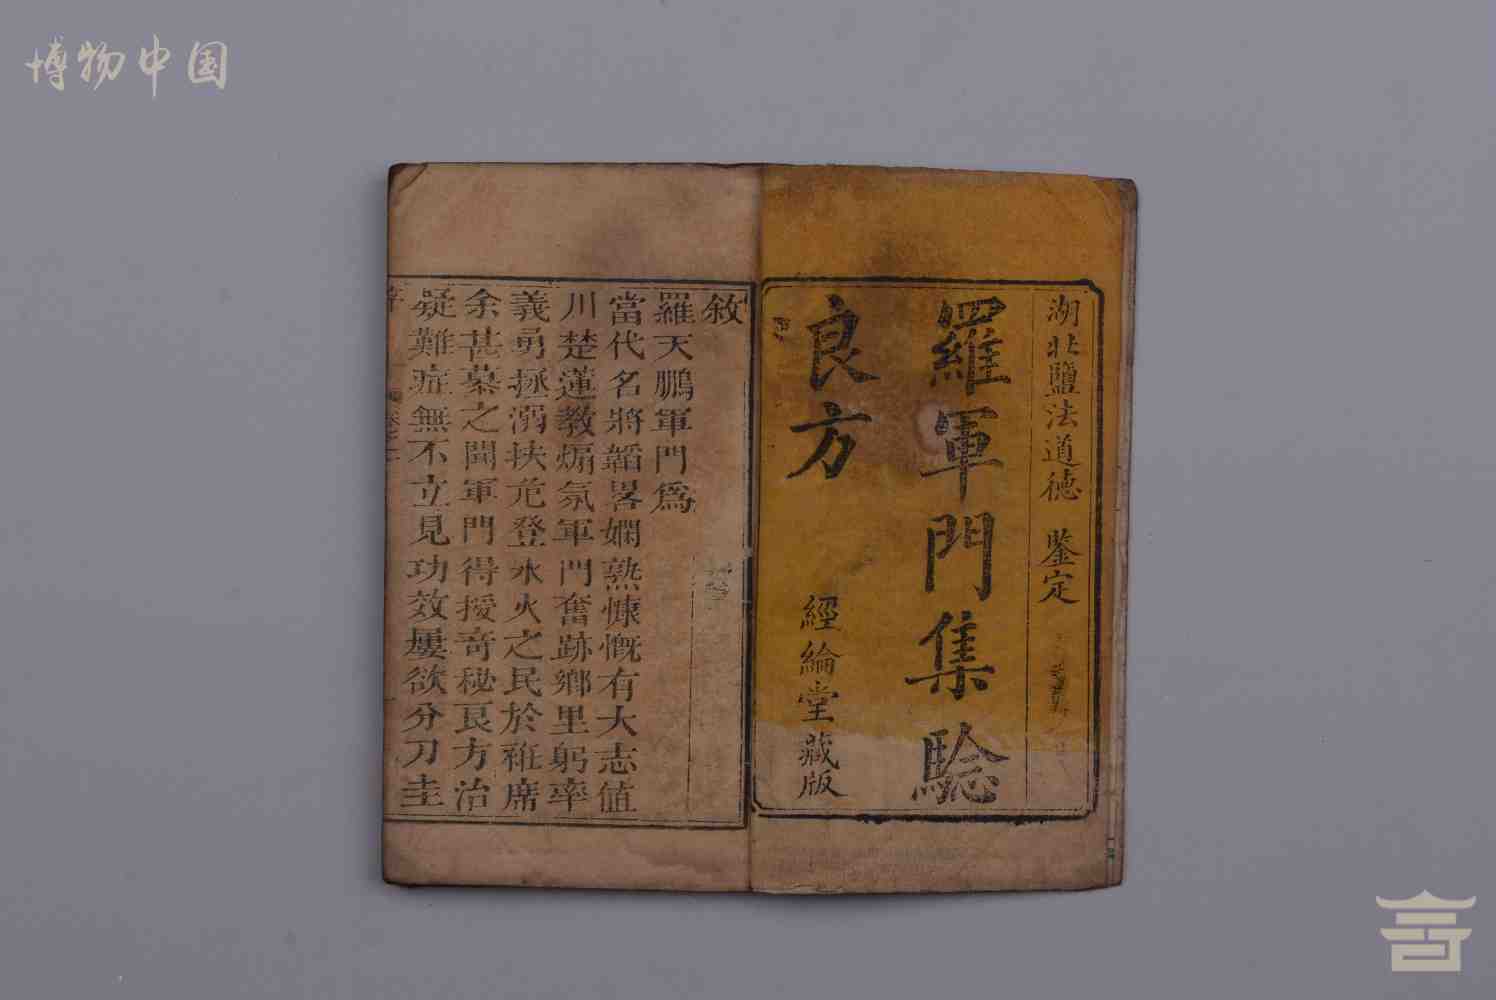 博物中国
湖北鹽法道德 鑒定
羅軍門集騐
良方
經綸堂藏版
敘
羅天鵬軍門爲
當代名將韜畧嫻熟慷慨有大志值
川楚蓮教煽氛軍門奮跡鄉里躬率
義勇拯溺扶危登水火之民於袵席
余甚慕之聞軍門得授奇秘良方治
疑難症無不立見功效屢欲分刀圭